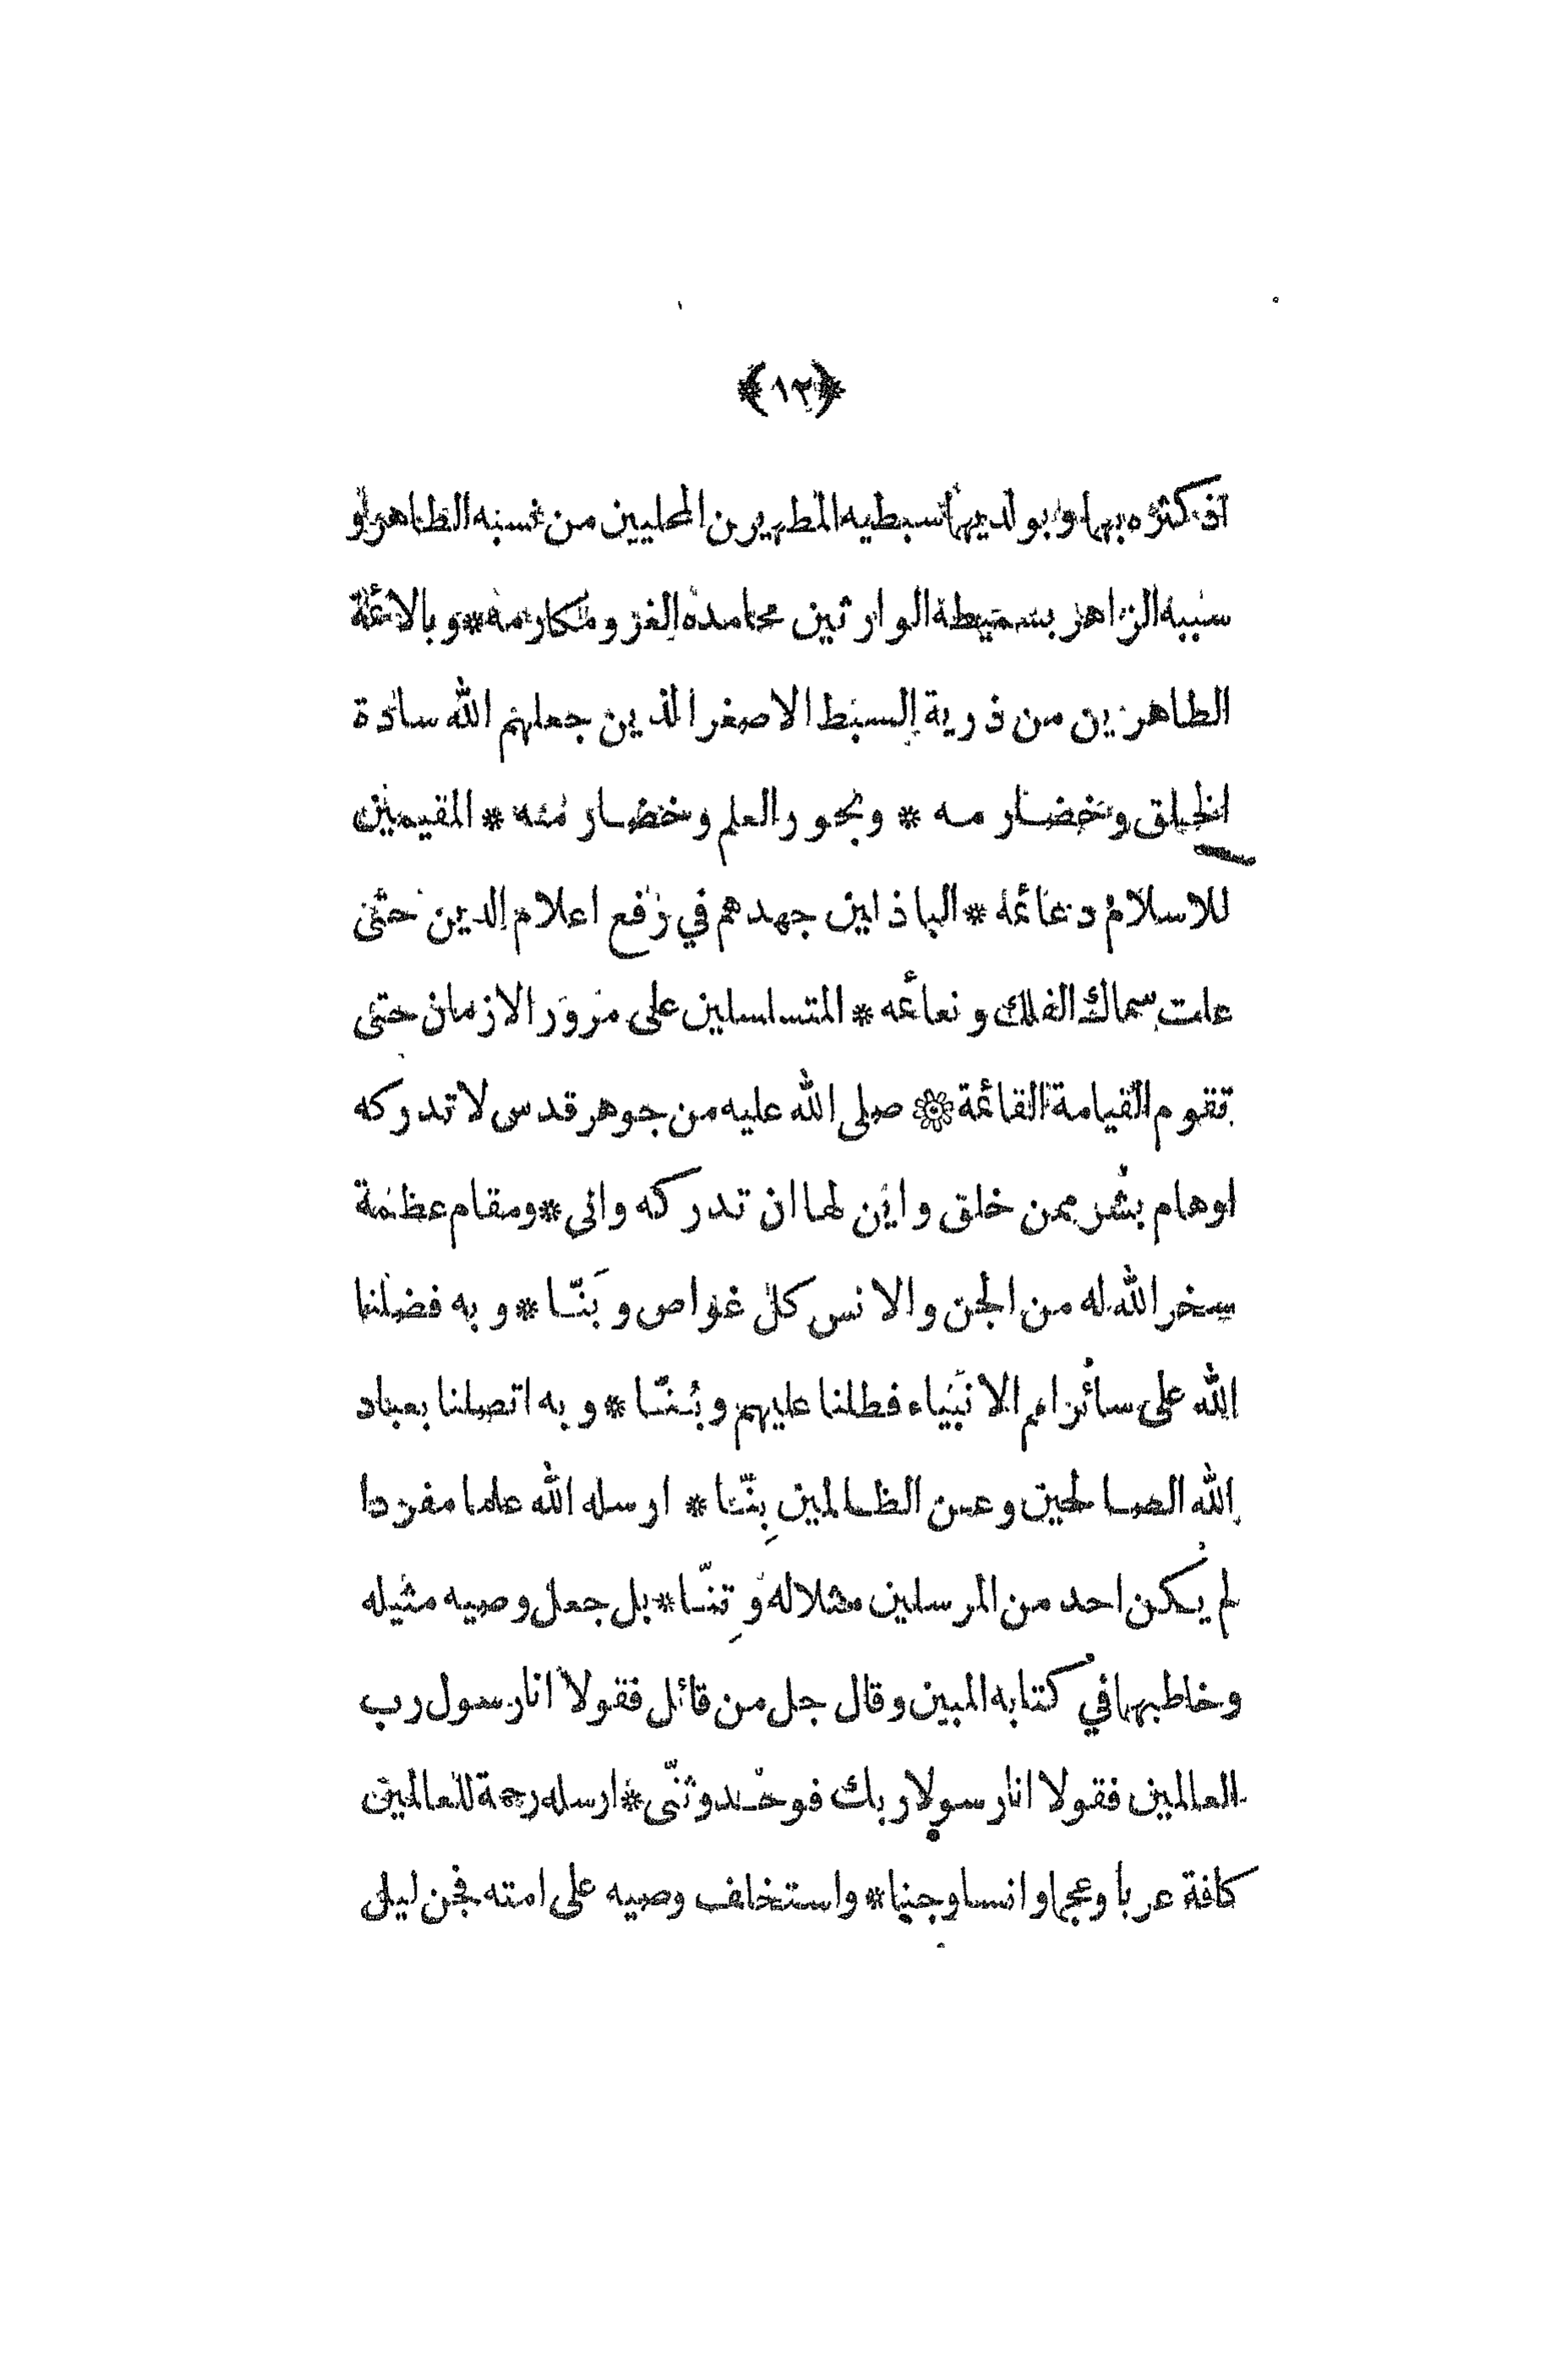 ﴿١٢﴾
اذ كثره بهما و بولديهما سبطيه المطهرين المحليين من نسبه الطاهر و
سببه الزاهر بسميطة الوارثين محامده الغر ومكارمه * و بالائمة
الطاهرين من ذرية السبط الاصغر الذين جعلهم الله سادة
الخلق وخضارمه * وبحور العلم وخضارمه * المقيمين
للاسلام دعائمه * الباذلين جهدهم في رفع اعلام الدين حتى
علت سماك الفلك و نعائمه * المتسلسلين على مرور الازمان حتى
تقوم القيامة القائمة * صلى الله عليه من جوهر قدس لا تدركه
اوهام بشر ممن خلق و اين لها ان تدركه وانى * ومقام عظمة
سخر الله له من الجن والانس كل غواص و بَنّا * و به فضلنا
الله على سائر امم الانبياء فطلنا عليهم و بُنّا * و به اتصلنا بعباد
الله الصالحين وعن الظالمين بِنّا * ارسله الله علما مفردا
لم يكن احد من المرسلين مثلا له و تِنّا * بل جعل وصيه مثيله
وخاطبهما في كتابه المبين وقال جل من قائل فقولا انا رسول رب
العالمين فقولا انا رسولا ربك فوحد وثنّى * ارسله رحمة للعالمين
كافة عربا وعجما و انسا وجنيا * واستخلف وصيه على امته فجن ليل